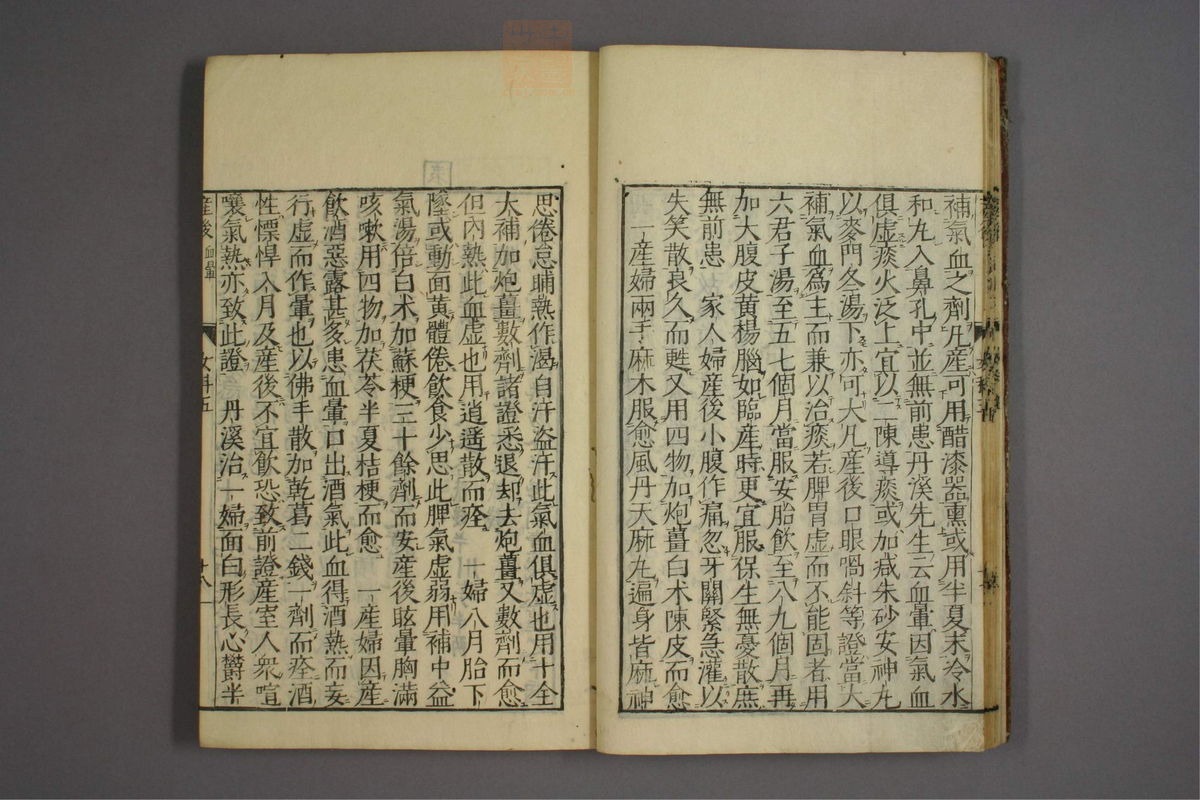 補氣血之劑凡産可用醋漆器熏或用半夏末冷水
和丸入鼻孔中並無前患丹溪先生云血暈因氣血
俱虚痰火泛上宜以二陳導痰或加减朱砂安神丸
以麥門冬湯下亦可大凡産後口眼喎斜等證當大
補氣血爲主而兼以治痰若脾胃虚而不能固者用
六君子湯至五七個月當服安胎飲至八九個月再
加大腹皮黄楊腦如臨産時更宜服保生無憂散庶
無前患　家人婦産後小腹作痛忽牙關緊急灌以
失笑散良久而甦又用四物加炮薑白术陳皮而愈
一産婦兩手麻木服愈風丹天麻丸遍身皆麻神
思倦怠晡熱作渴自汗盗汗此氣血俱虚也用十全
大補加炮薑數劑諸證悉退却去炮薑又數劑而愈
但内熱此血虚也用逍遥散而痊　一婦八月胎下
墜或動面黄體倦飲食少思此脾氣虚弱用補中益
氣湯倍白术加蘇梗三十餘劑而安産後眩暈胸滿
咳嗽用四物加茯苓半夏桔梗而愈　一産婦因産
飲酒惡露甚多患血暈口出酒氣此血得酒熱而妄
行虚而作暈也以佛手散加乾葛二錢一劑而痊酒
性慓悍入月及産後不宜飲恐致前證産室人衆喧
嚷氣熱亦致此證　丹溪治一婦面白形長心欝半
産後 血暈
女科五
十八